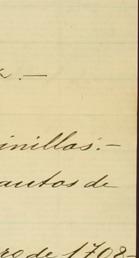 .—
inillas.—
autos de
ro de 1708-